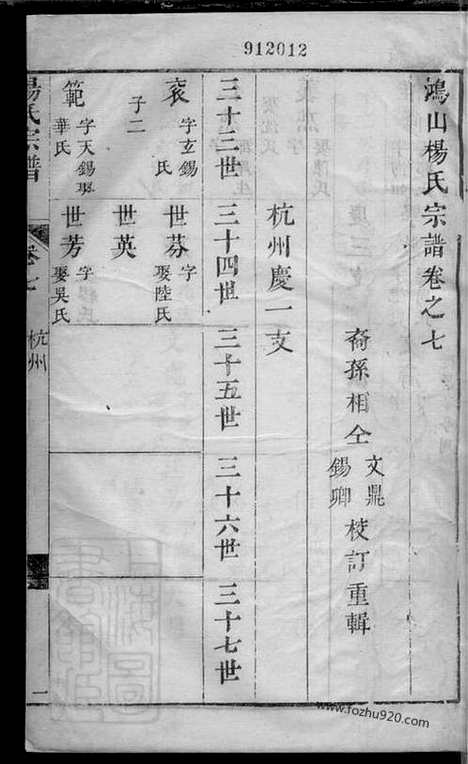 912012
鴻山楊氏宗譜卷之七
裔孫相仝
文鼎
錫卿
校訂重輯
杭州慶一支
三十三世
三十四世
三十五世
三十六世
三十七世
字玄錫
氏
子二
世芬
字
娶陸氏
世英
範
字天錫娶
華氏
世芳
字
娶吳氏
楊氏宗譜
卷七
杭州
一
www.fozhu920.com